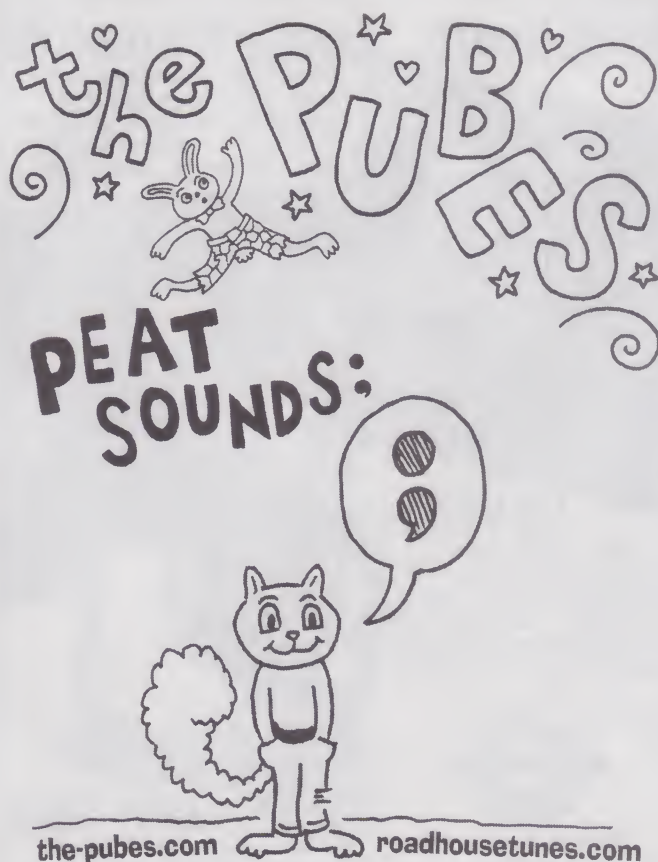 the PUBES
PEAT
SOUNDS;
;
the-pubes.com roadhousetunes.com